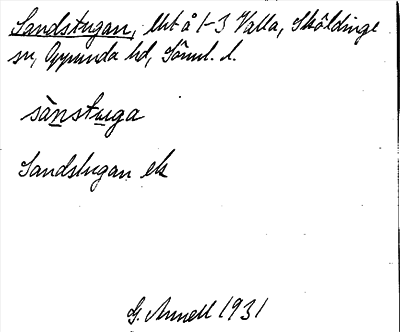 Sandstugan, lht å 1-3 Valla, Sköldinge
sn, Oppunda hd, Söml. l.
sànstuga
Sandstugan ek
G. Annell 1931